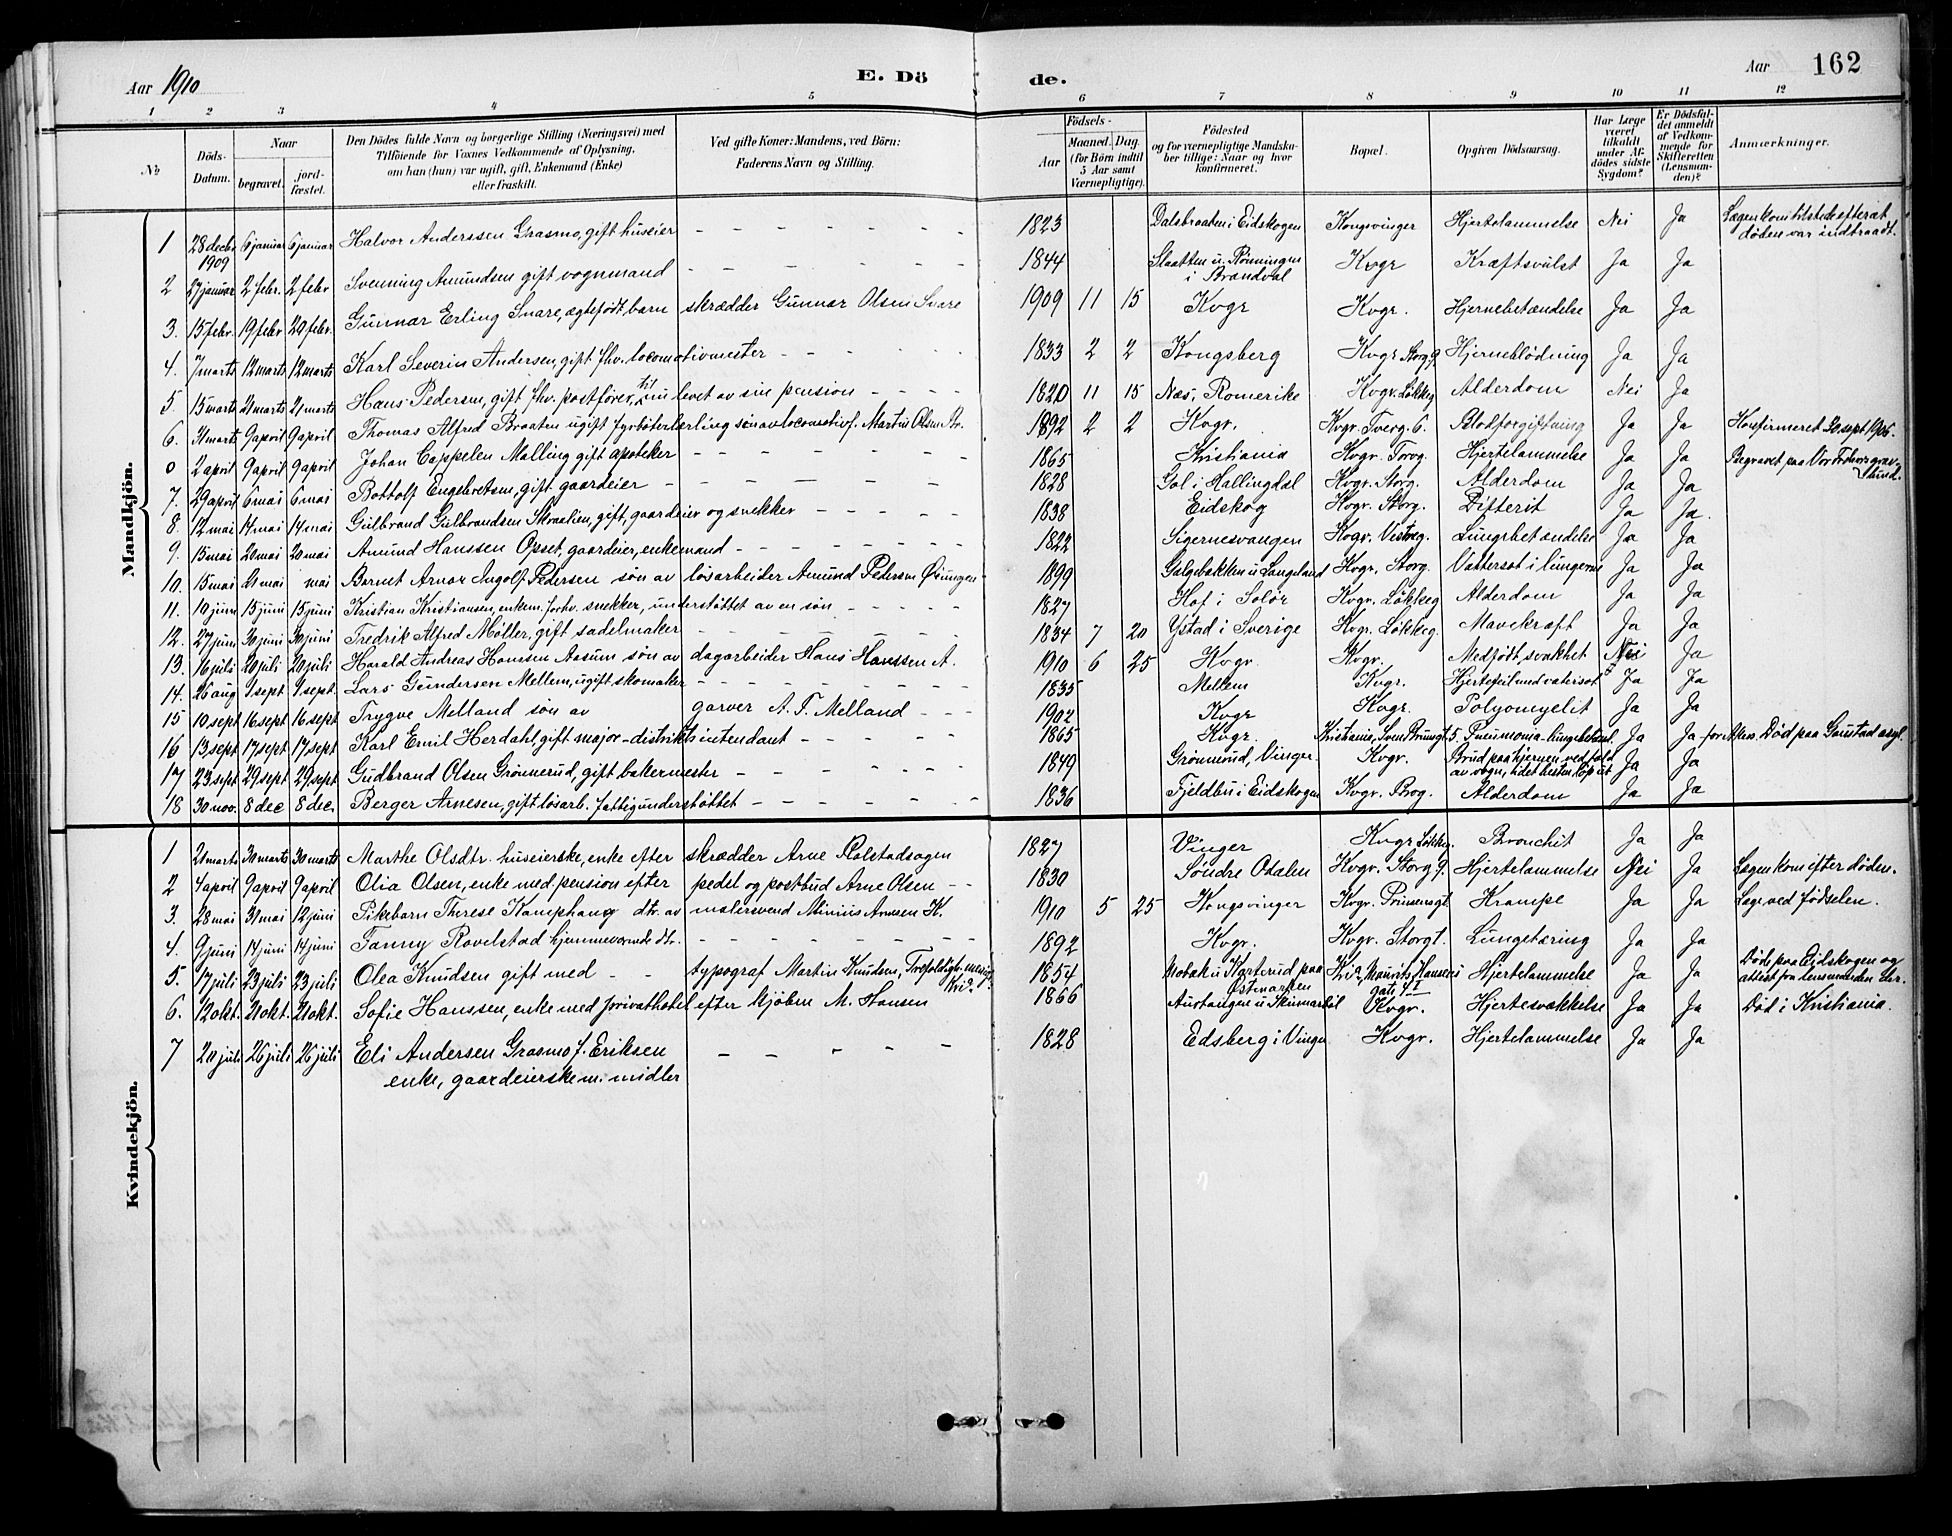 Aar 1910
E. Dö
de.
Aar
162
1 2 3 4 5 6 7 8 9 10 11 12
№
Döds-Datum.
Naar
begravet.
jord-fæstet.
Den Dödes fulde Navn og borgerlige Stilling (Næringsvei) med
Tilföiende for Voxnes Vedkommende af Oplysning,
om han (hun) var ugift, gift, Enkemand (Enke)
eller fraskilt.
Ved gifte Koner: Mandens, ved Börn:
Faderens Navn og Stilling.
Födsels-
Aar
Maaned. Dag.
(for Börn indtil
5 Aar samt
Værnepligtige).
Födested
og for værnepligtige Mandska-
ber tillige: Naar og hvor
konfirmeret.
Bopæl.
Opgiven Dödsaarsag.
Har Læge
været
tilkaldt
under Af-
dödes sidste
Sygdom?
Er Dödsfal-
det anmeldt
af Vedkom-
mende for
Skifteretten
(Lensman-
den)?
Anmærkninger.
Mandkjön.
1 28 decbr 1909 6 januar 6 januar Halvor Anderssen Grasmo, gift huseier – – – – – – 1823 Dalsbraaten i Eidskogen Kongsvinger Hjertelammelse Nei Ja Lægen kom tilstede efterat döden var indtraadt.
2 27 januar 2 febr. 2 febr Svenning Amundsen gift vognmand – – – – – – 1844 Slaatten u. Rönningen i Brandval Kvgr Kræftsvulst Ja Ja
3. 15 febr. 19 febr 20 febr. Gunnar Erling Snare, ægtefödt barn skrædder Gunnar Olsen Snare 1909 11 15 Kvgr Kvgr. Hjernebetændelse Ja Ja
4. 7 marts 12 marts 12 marts Karl Severin Andersen, gift, fhv. locomotivmester – – – – – 1833 2 2 Kongsberg Kvgr Storg 9. Hjerneblödning Ja Ja
5 15 marts 21 marts 21 marts Hans Pedersen, gift fhv. postförer, til nu levet av sin pension – – – – 1820 11 15 Næs, Romerike Kvgr. Løkkeg Alderdom Nei Ja
6. 31 marts 9 april 9 april Thomas Alfred Braaten ugift fyrböterlærling sön av locomotivf. Martin Olsen Br. 1892 2 2 Kvgr. Kvgr. Tverg. 6. Blodforgiftning Ja Ja Konfirmeret 30 sept 1906.
0 2 april 9 april 9 april Johan Cappelen Malling gift apoteker – – – – – – 1865 Kristiania Kvgr. Torvg. Hjertelammelse Ja Ja Begravet paa Vor Frelsers gravlund.
7. 29 april 6 mai 6 mai Bottolf Engebretsen, gift gaardeier – – – – – – 1828 Gol i Hallingdal Kvgr. Storg. Alderdom Ja Ja
8. 12 mai 14 mai 14 mai Gulbrand Gulbrandsen Skraalien, gift, gaardeier og snekker – – – – – 1838 Eidskog Kvgr. Storg. Difterit Ja Ja.
9. 15 mai 20 mai 20 mai Amund Hanssen Opset, gaardeier, enkemand – – – – – – 1822 Sigernesvangen Kvgr. Vestreg. Lungebetændelse Ja Ja
10. 15 mai 21 mai mai Bernet Arnor Ingolf Pedersen sön av lösarbeider Amund Pedersen 1899 Galgebakken u Langeland Kvgr. Storg. Vattersot i lungerne Ja Ja
11. 10 juni 15 juni 15 juni Kristian Kristiansen, enkem. forhv. snekker, understöttet av en sön – – – – 1827 Hof i Solör Kvgr. Løkkeg Alderdom Ja Ja
12. 27 juni 30 juni 30 juni Fredrik Alfred Möller, gift sadelmaker – – – – – – 1834 7 20 Ystad i Sverige Kvgr. Løkkeg. Mavekræft Ja Ja
13. 16 juli 20 juli 20 juli Harald Andreas Hanssen Aasum sön av dagarbeider Hans Hanssen A. 1910 6 25 Kvgr Kvgr. Medfödt svakhet Nei Ja
14. 26 aug 1 sept 1 sept. Lars Gundersen Mellem, ugift skomaker – – – – – – 1835 Mellem Kvgr. Hjertefeil med vatersot Ja Ja
15 10 sept 16 sept 16 sept Trygve Melland sön av garver A. T. Melland – – – 1902 Kvgr Kvgr. Polyomyelit Ja Ja
16 13 sept 17 sept 17 sept Karl Emil Herdahl, gift major – distriktsintendant – – – – – 1865 Kvgr. Kristiania, Sven Brungt 5. Pneumonia – lungebetænd. Ja Ja Död paa Gaustad asyl
17 23 sept 29 sept 29 sept Gudbrand Olsen Grönnerud, gift bakermester – – – – – – 1849 Grönnerud, Vinger Kvgr. Brud paa hjernen ved fald av vogn, idet hesten löp ut Ja Ja
18 30 nov. 8 dec 8 dec. Berger Arnesen, gift lösarb. fattigunderstöttet – – – – – – 1836 Fjeldbu i Eidskogen Kvgr. Brog. Alderdom Ja Ja
Kvindekjön.
1 21 marts 30 marts 30 marts Marthe Olsdtr. huseierske, enke efter skrædder Arne Rolstadsagen 1827 Vinger Kvgr Løkkeg. Bronchit Ja Ja
2 4 april 9 april 9 april Olia Olsen, enke med pension efter pedel og postbud Arne Olsen – – 1830 Söndre Odalen Kvgr. Storg 9. Hjertelammelse Nei Ja Lægen kom efter döden.
3. 28 mai 31 mai 12 juni Pikebarn Therese Kamphaug dtr. av malersvend Minius Arnesen K. 1910 5 25 Kongsvinger Kvgr. Prinsensgt Krampe Ja Ja Læge ved födselen.
4. 9 juni 14 juni 14 juni Fanny Rovelstad hjemmeværende dtr. – – – – – – 1892 Kvgr. Kvgr. Storgt. Lungetæring Ja Ja
5. 17 juli 23 juli 23 juli Olea Knudsen gift med – – typograf Martin Knudsen, Trefoldigh. menigh. Kria. 1854 Mobæk u Harterud paa Östmarken Kria, Maurits Hansens gate 4 I Hjertelammelse Ja Ja Död paa Eidskogen og attest fra lensmanden der.
6. 12 okt. 21 okt. 21 okt. Sofie Hanssen, enke med privathotel efter kjöbm M. Hansen 1866 Aurtangen u Skinnarböl Kvgr. Hjertesvækkelse Ja Ja Död i Kristiania.
7 20 juli 26 juli 26 juli Eli Andersen Grasmo f. Eriksen – – – – – 1828 Edsberg i Vinger Kvgr. Hjertelammelse Ja Ja
enke, gaardeierske m. midler